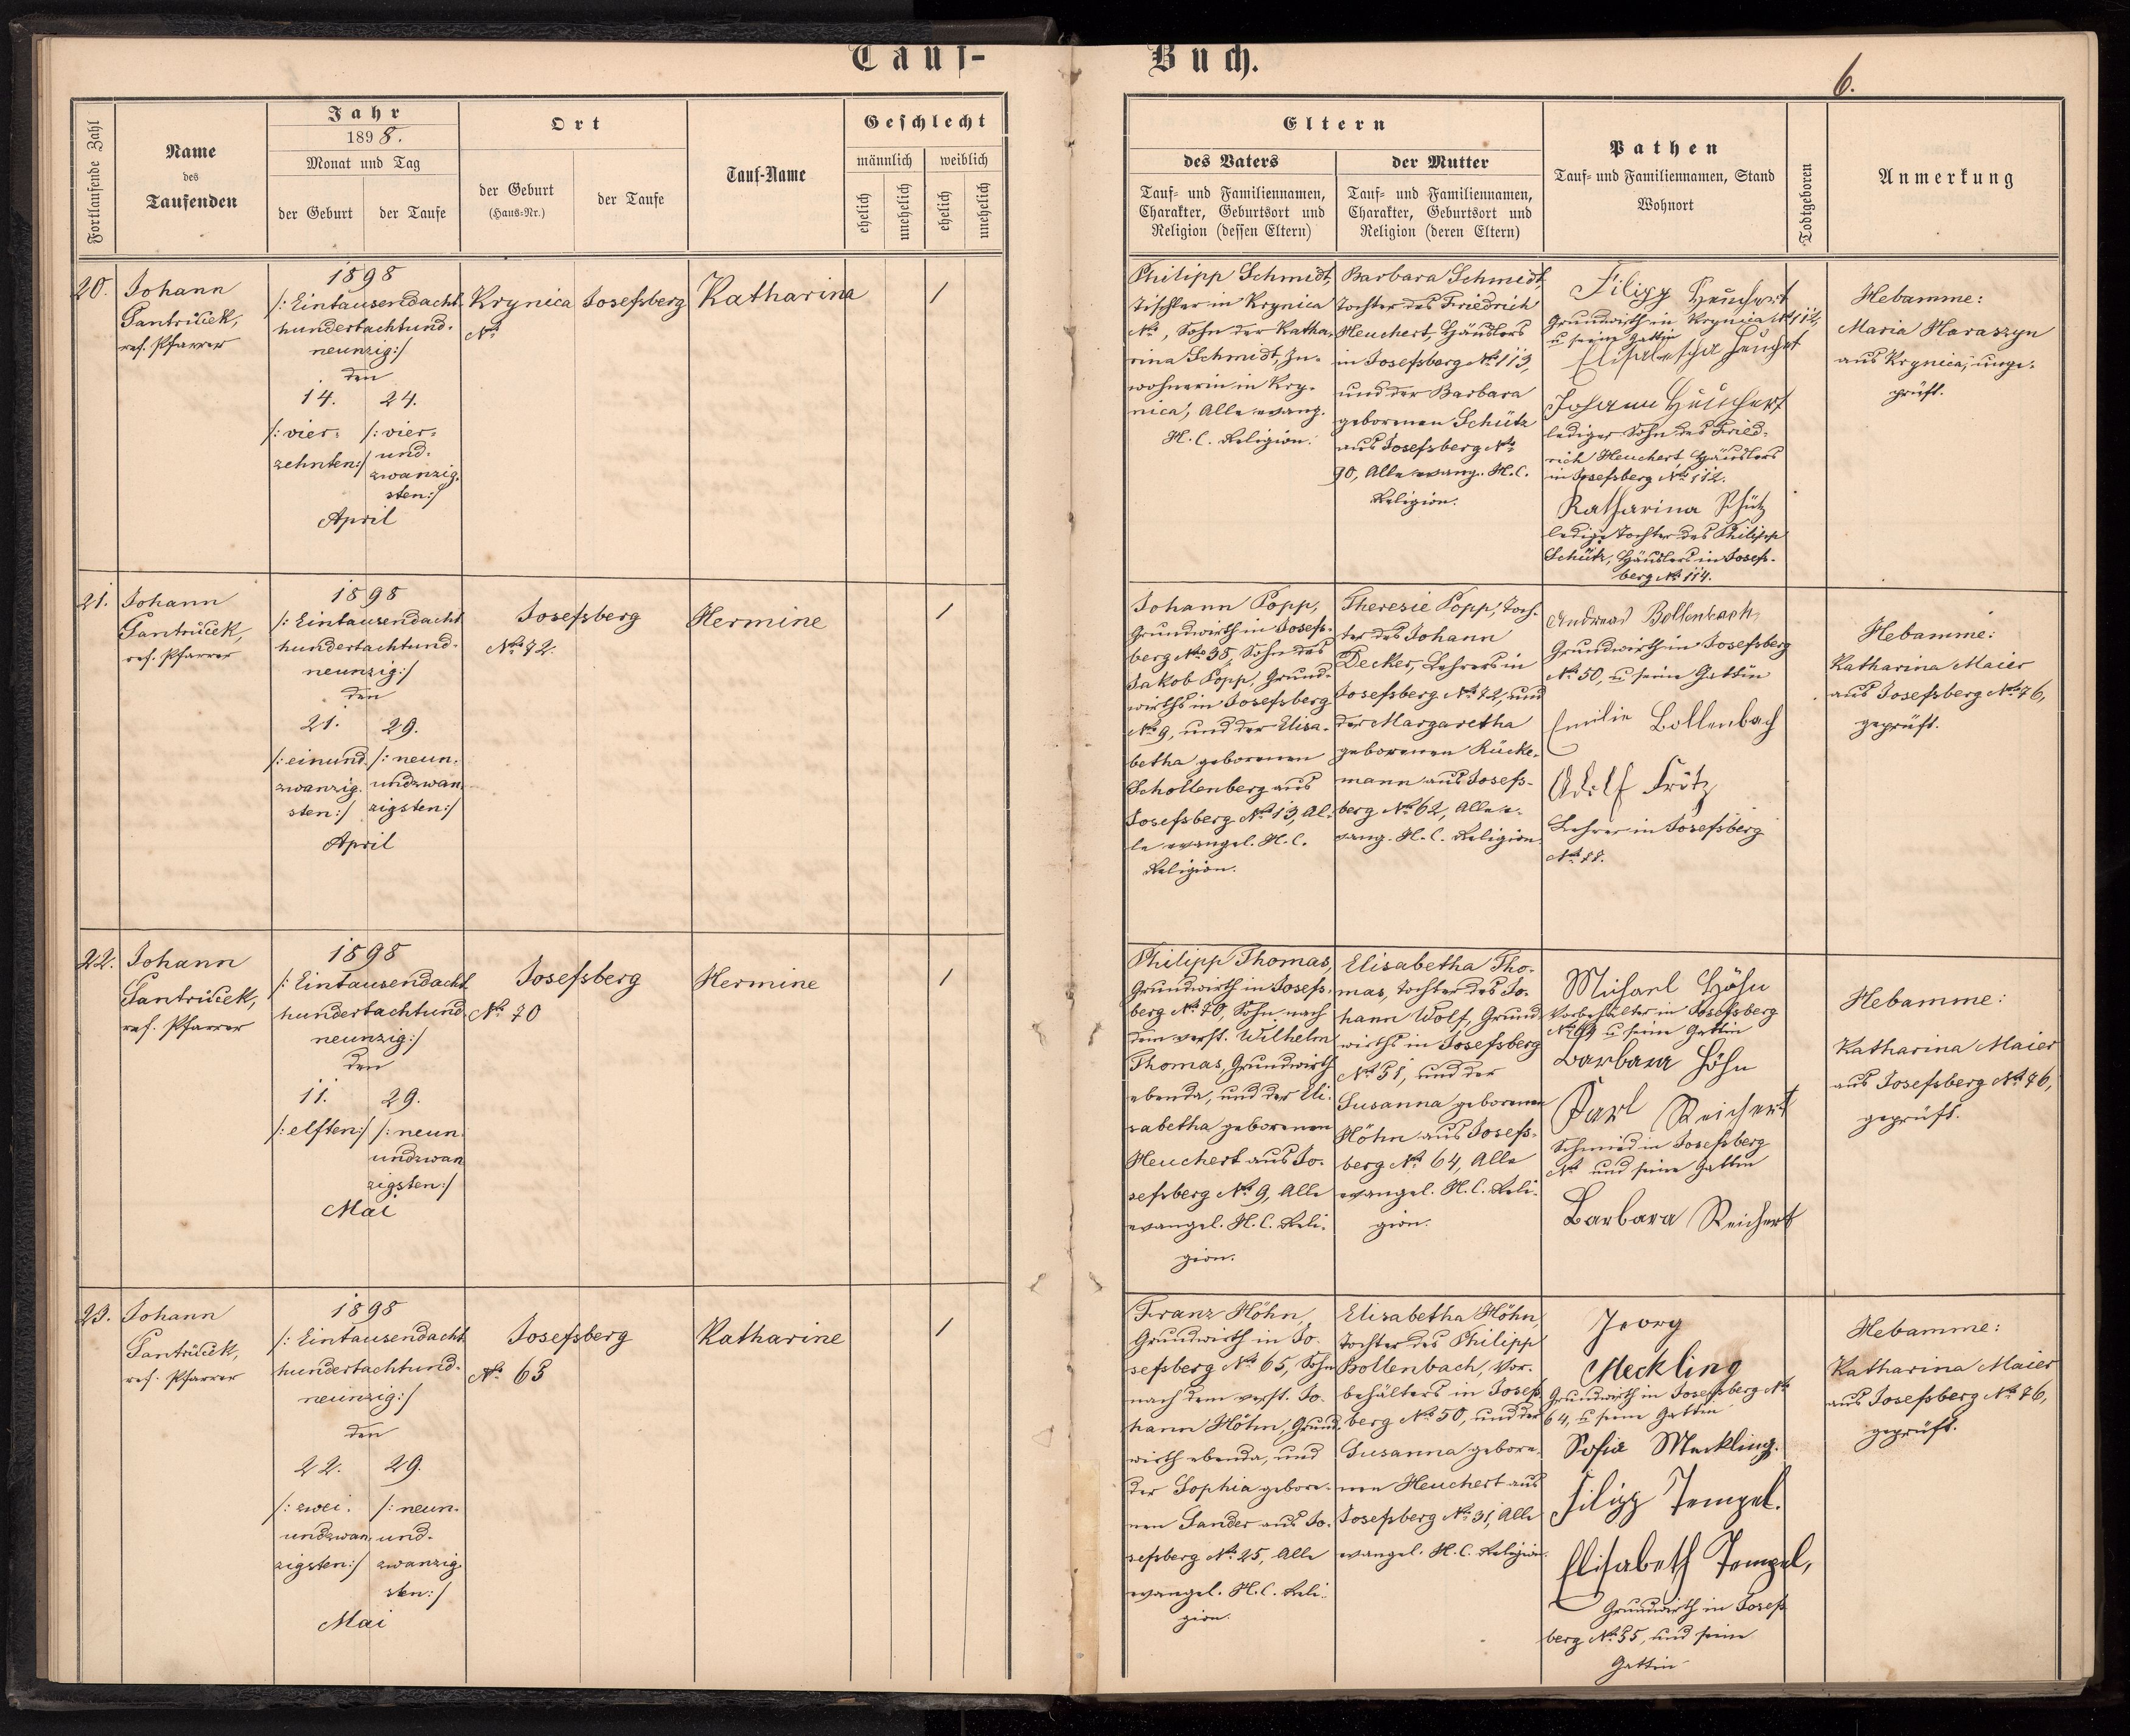 Tauf-
Buch.
6.
Fortlaufende Zahl
Name
des
Taufenden
Jahr
1898.
Monat und Tag
der Geburt
der Taufe
Ort
der Geburt
(Haus=Nr.)
der Taufe
Tauf-Name
Geschlecht
männlich
weiblich
ehelich
unehelich
ehelich
unehelich
Eltern
des Vaters
Tauf= und Familiennamen,
Charakter, Geburtsort und
Religion (dessen Eltern)
der Mutter
Tauf= und Familiennamen,
Charakter, Geburtsort und
Religion (deren Eltern)
Pathen
Tauf= und Familiennamen, Stand
Wohnort
Todtgeboren
Anmerkung
20.
Johann
ref. Pfarrer
1898
/: Eintausendacht
hundertachtund-
neunzig:/
den
14.
24.
/: vier-
zehnten:/
/: vier-
und-
zwanzig-
sten:/
April
Krynica
No
Josefsberg
Katharina
/
Philipp Schmidt,
Tischler in Krynica
No, Sohn der Katha-
rina Schmidt, In-
wohnerin in Kry-
nica, Alle evang.
H. C. Religion.
Barbara Schmidt,
Tochter des Friedrich
Heuchert, Häuslers
in Josefsberg No 113,
und der Barbara
geborenen Schütz
aus Josefsberg No
90, Alle evang. H. C.
Religion.
Filipp Heuchert
Grundwirth in Krynica No 112,
u seine Gattin
Johann Heuchert
lediger Sohn des Fried-
rich Heuchert Häuslers
in Josefsberg No 112.
Katharina Schütz
ledige Tochter des Philipp
Schütz, Häuslers in Josefs-
berg No 114.
Hebamme:
Maria Haraszyn
aus Krynica, unge-
prüft.
21.
Johann
ref. Pfarrer
1898
/: Eintausendacht
hundertachtund-
neunzig:/
den
21.
29.
/: einund
zwanzig-
sten:/
/: neun-
undzwan
zigsten:/
April
Josefsberg
No 72.
Hermine
/
Johann Popp,
Grundwirth in Josefs-
berg No 38, Sohn des
Jakob Popp, Grund-
wirths in Josefsberg
No 9, und der Elisa-
betha geborenen
Schollenberg aus
Josefsberg No 13, Al-
le evangel. H. C.
Religion.
Theresie Popp, Toch-
ter des Johann
Decker, Lehrers in
Josefsberg No 72, und
der Margaretha
geborenen Rücke-
mann aus Josefs-
berg No 62, Alle e-
vang. H. C. Religion.
Andreas Bollenbach
Grundwirth in Josefsberg
No 50, u seine Gattin
Emilie Bollenbach
Adolf
Lehrer in Josefsberg
No 88.
Hebamme:
Katharina Maier
aus Josefsberg No 76,
geprüft.
22.
Johann
ref. Pfarrer
1898
/: Eintausendacht
hundertachtund
neunzig:/
den
11.
29.
/: elften:/
/: neun
undzwan
zigsten:/
Mai
Josefsberg
No 70
Hermine
/
Philipp Thomas,
Grundwirth in Josefs-
berg No 70, Sohn nach
dem verst. Wilhelm
Thomas, Grundwirth
ebenda, und der Eli-
sabetha geborenen
Heuchert aus Jo-
sefsberg No 9, Alle
evangel. H. C. Reli-
gion.
Elisabetha Tho-
mas, Tochter des Jo-
hann Wolf, Grund-
wirths in Josefsberg
No 51, und der
Susanna geborenen
Höhn aus Josefs-
berg No 64, Alle
evangel. H. C. Reli-
gion.
Michael Höhn
Vorbehälter in Josefsberg
No 64 u seine Gattin
Barbara Höhn
Karl Reichert
Schmied in Josefsberg
No und seine Gattin
Barbara Reichert
Hebamme:
Katharina Maier
aus Josefsberg No 76,
geprüft.
23.
Johann
ref. Pfarrer
1898
/: Eintausendacht
hundertachtund-
neunzig:/
den
22.
29.
/: zwei-
undzwan-
zigsten:/
/: neun-
und-
zwanzig-
sten:/
Mai
Josefsberg
No 65
Katharine
/
Franz Höhn,
Grundwirth in Jo-
sefsberg No 65, Sohn
nach dem verst. Jo-
hann Höhn, Grund-
wirth ebenda, und
der Sophia gebore-
nen Sander aus Jo-
sefsberg No 25, Alle
evangel. H. C. Reli-
gion.
Elisabetha Höhn,
Tochter des Philipp
Bollenbach, Vor-
behälters in Josefs-
berg No 50, und der
Susanna gebore-
nen Heuchert aus
Josefsberg No 31, Alle
evangel. H. C. Religion.
Georg
Meckling
Grundwirth in Josefsberg No
64, u seine Gattin
Sofia Meckling.
Filipp Tempel.
Elisabeth Tempel,
Grundwirth in Josefs
berg No 55, und seine
Gattin
Hebamme:
Katharina Maier
aus Josefsberg No 76,
geprüft.